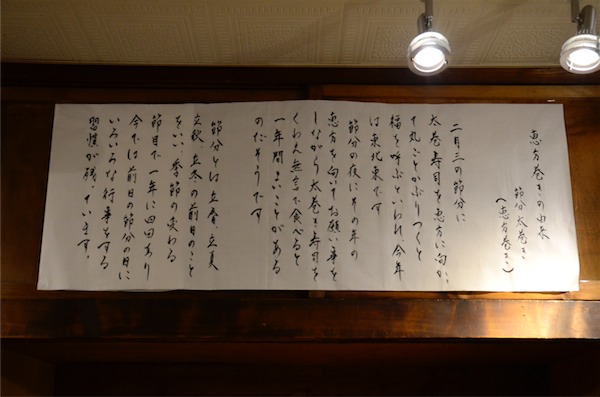 恵方巻きの由来
節分太巻き
(恵方巻き)
二月三の節分に
太巻寿司を恵方に向か
て丸ごとかぶりつくと
福を呼ぶといわれ今年
は東北東です
節分の夜にその年の
恵方を向いてお願い事を
しながら太巻き寿司を
くわえ無言で食べると
一年間まいことがある
のだそうです
節分とは立春、立夏
立秋、立冬の前日のこと
をいい、季節の変わる
節目で一年に四回あり
今では前日の節分の日に
いろいろな行事をする
習慣が残っています。